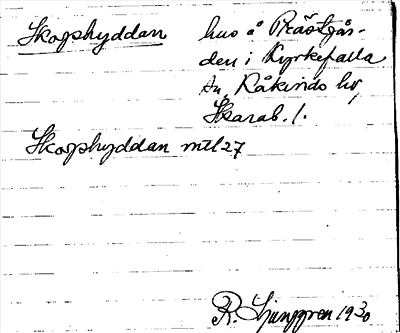 Skogshyddan hus å Prästgår-
den i Kyrkefalla
sn, Kåkinds hd,
Skarab. l.
Skogshyddan mtl 27
R. Ljunggren 1930